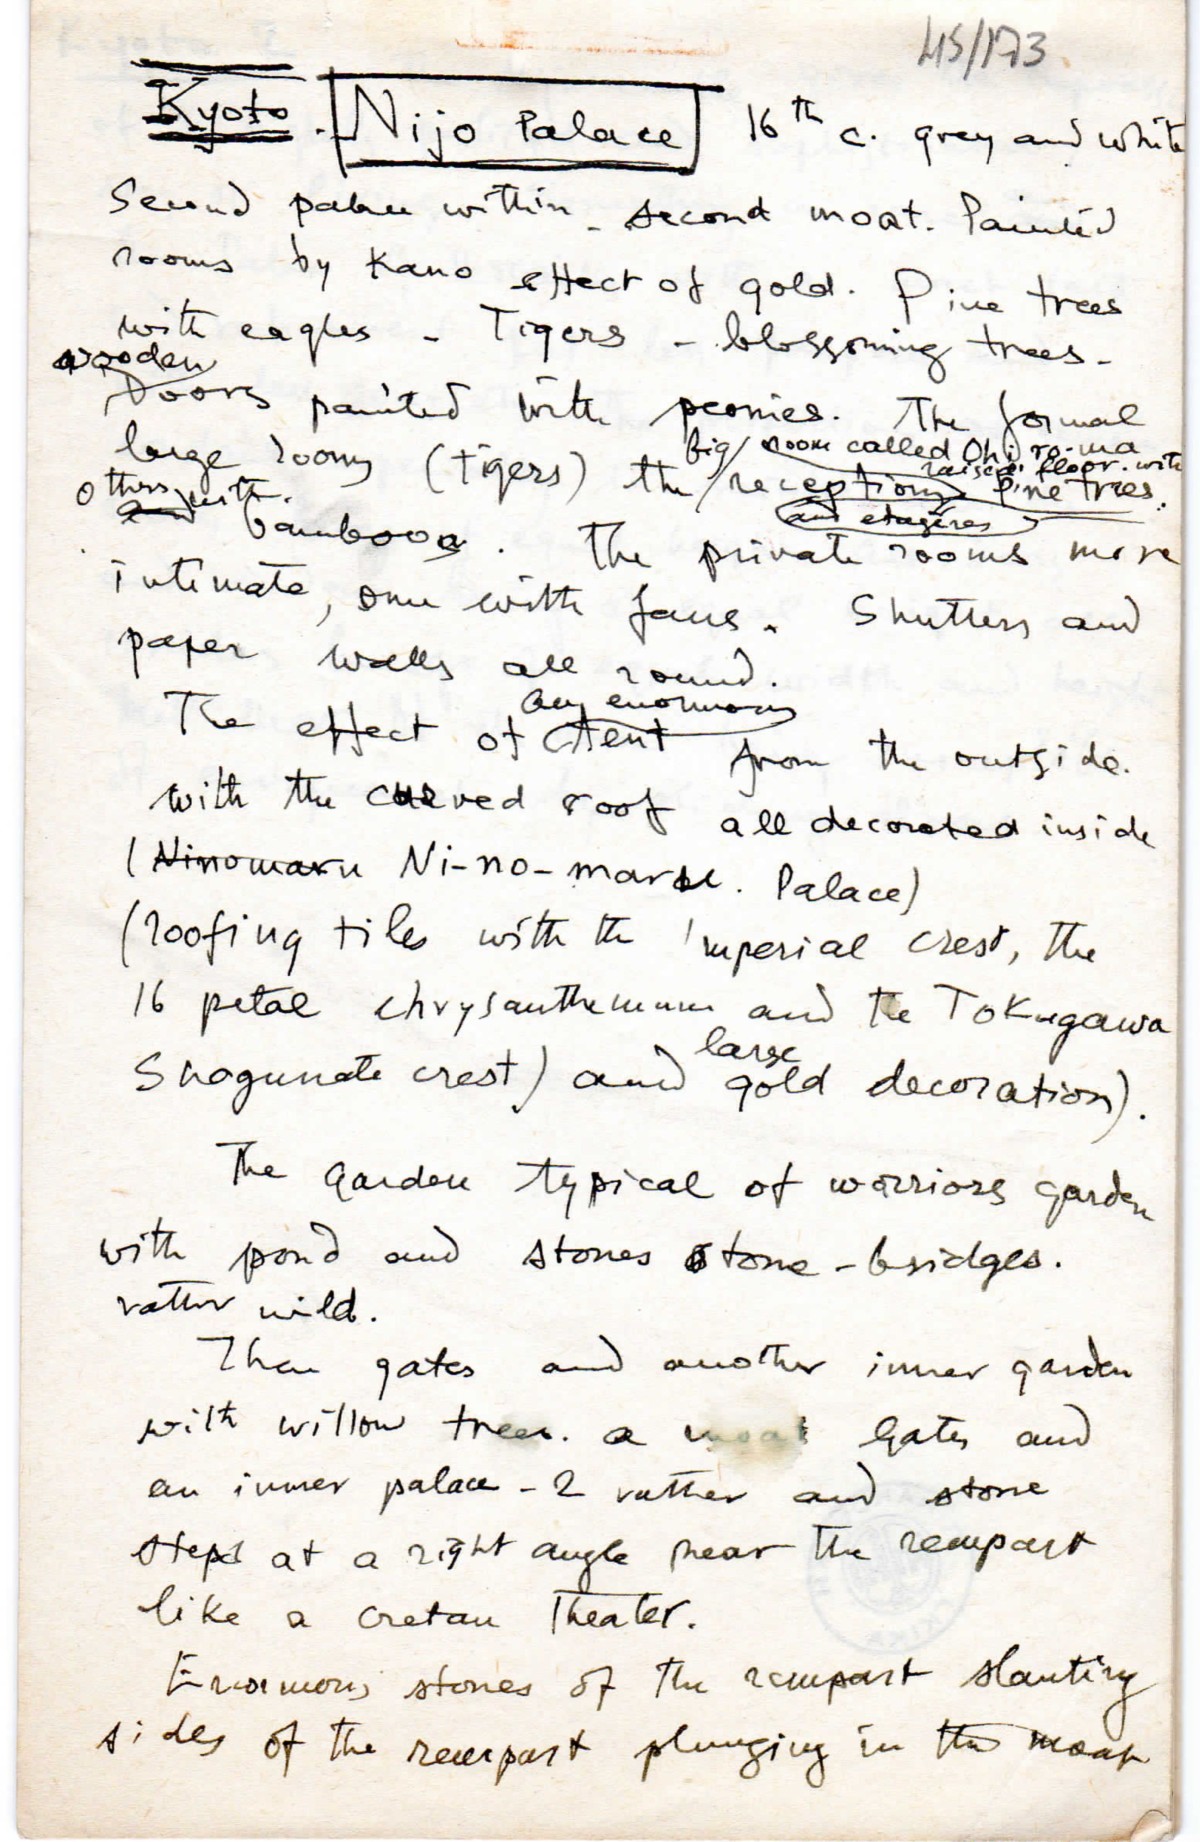 45/173
Kyoto. Nijo Palace 16th c. grey and white
Second palace within - second moat. Painted
rooms by Kano effect of gold. Pine trees
with eagles - Tigers - blossoming trees -
wooden
Doors painted with peonies. The formal
big room called Ohiroma
large rooms (tigers) the reception Pine trees.
raised floor with
others with
and etagères
bamboos. The private rooms more
intimate, one with fans. Shutters and
paper walls all round.
any enormous
The effect of tent from the outside.
with the curved roof all decorated inside
(Ninomaru Ni-no-maru. Palace)
(roofing tiles with th imperial crest, the
16 petal chrysanthemum and the Tokugawa
large
Shogunate crest) and gold decoration).
The garden typical of warriors garden
with pond and stones stone-bridges.
rather wild.
Then gates and another inner garden
with willow trees. a moat Gates and
an inner palace - 2 rather and stone
steps at a right angle near the rempart
like a cretan Theater.
Enormous stones of the rempart slanting
sides of the rempart plunging in the moat